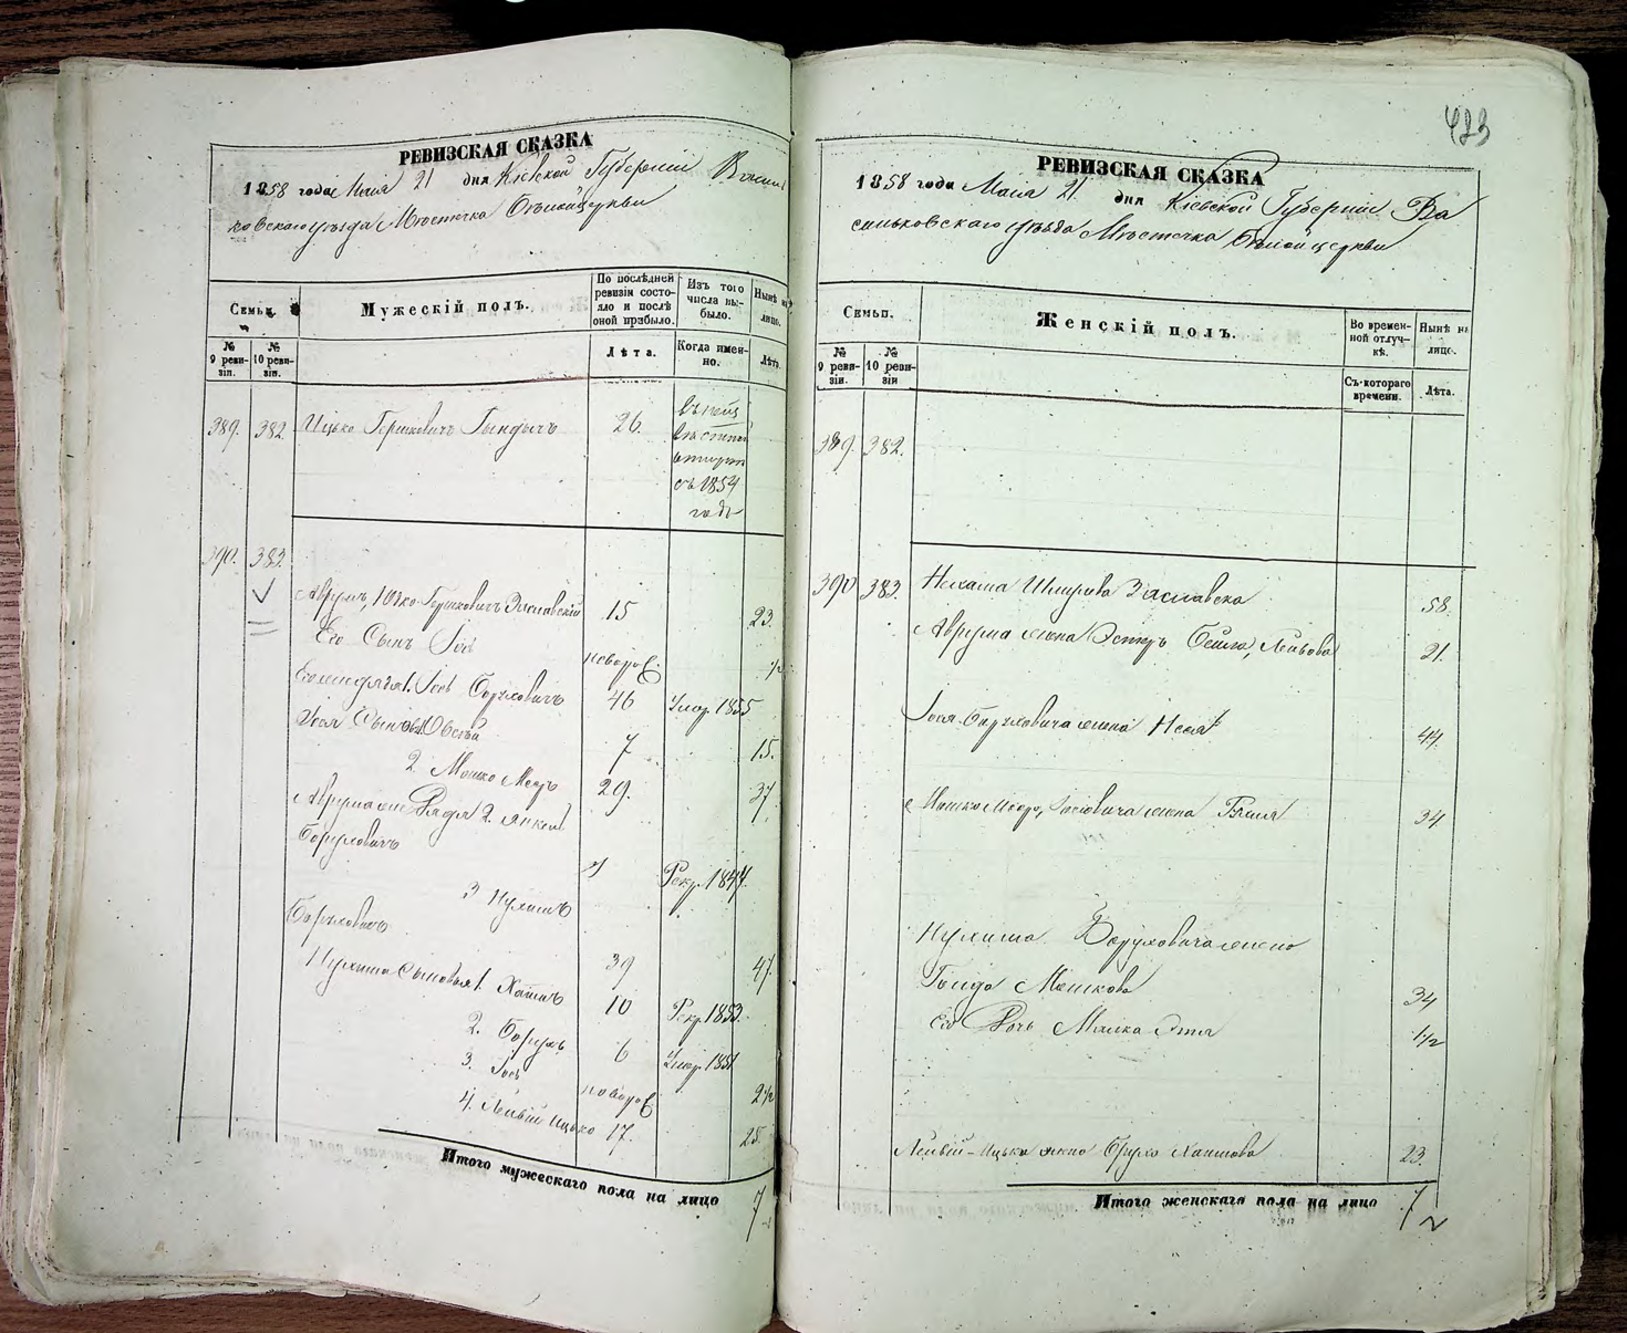 РЕВИЗСКАЯ СКАЗКА
1858 года Маія 21 дня Кіевской Губерніи Васил
ковскаго уѣзда Мѣстечка Бѣлойцеркви
Семьи.
Мужескій полъ.
По послѣдней ревизіи состояло и послѣ оной прибыло.
Изъ того числа выбыло.
Нынѣ на лицо.
№ 9 ревизіи.
№ 10 ревизіи.
Лѣта.
Когда именно.
Лѣта.
389. 382. Ицько Гершковичъ 26.
съ 1854
года
390. 383.
Аврумъ, Юдко Гершковичъ Заславскій 15 23.
Его Сынъ Іось новорож. 1/2
1. Іось Боруховичъ 46 Умер. 1855
Іося Сыновья 1. Овсѣй 7 15.
2. Мошко Мееръ 29. 37.
Аврума Дядя 2. Янкель
Боруховичъ Рекр. 1844.
3 Нухимъ
Боруховичъ 39 47.
Нухима Сыновья 1. Хаимъ 10 Рекр. 1853.
2. Борухъ 6 Умер. 1851
3. Іось новорож 2 1/2
4. Лейбій Ицько 17. 25.
Итого мужескаго пола на лицо 7
423
РЕВИЗСКАЯ СКАЗКА
1858 года Маія 21 дня Кіевской Губерніи Ва
сильковскаго уѣзда Мѣстечка Бѣлойцеркви
Семьи.
Женскій полъ.
Во временной отлучкѣ.
Нынѣ на лицо.
№ 9 ревизіи.
№ 10 ревизіи
Съ котораго времени.
Лѣта.
389. 382.
390 383. Нехама Шмулева Заславска 58.
Аврума жена Эстеръ Бейла, Лейбова 21.
Іося Боруховича жена Неся 44.
Мошко Меера, Іосіовича жена Баша 34
Нухима Боруховича жена
Голда Мошкова 34
Его Дочь Малка Этля 1 1/2
Лейбій-Ицька жена Бруха Хаимова 23.
Итого женскаго пола на лицо 7